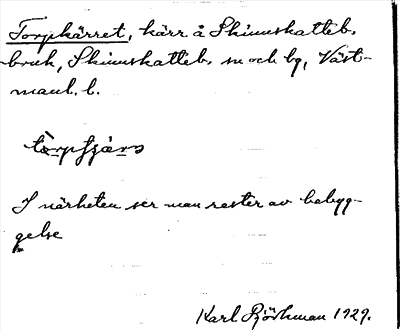 Torpkärret, kärr å Skinnskatteb.
bruk, Skinnskatteb. sn och bg, Väst-
manl. l.
I närheten ser man rester av bebyg-
gelse
Karl 1929.